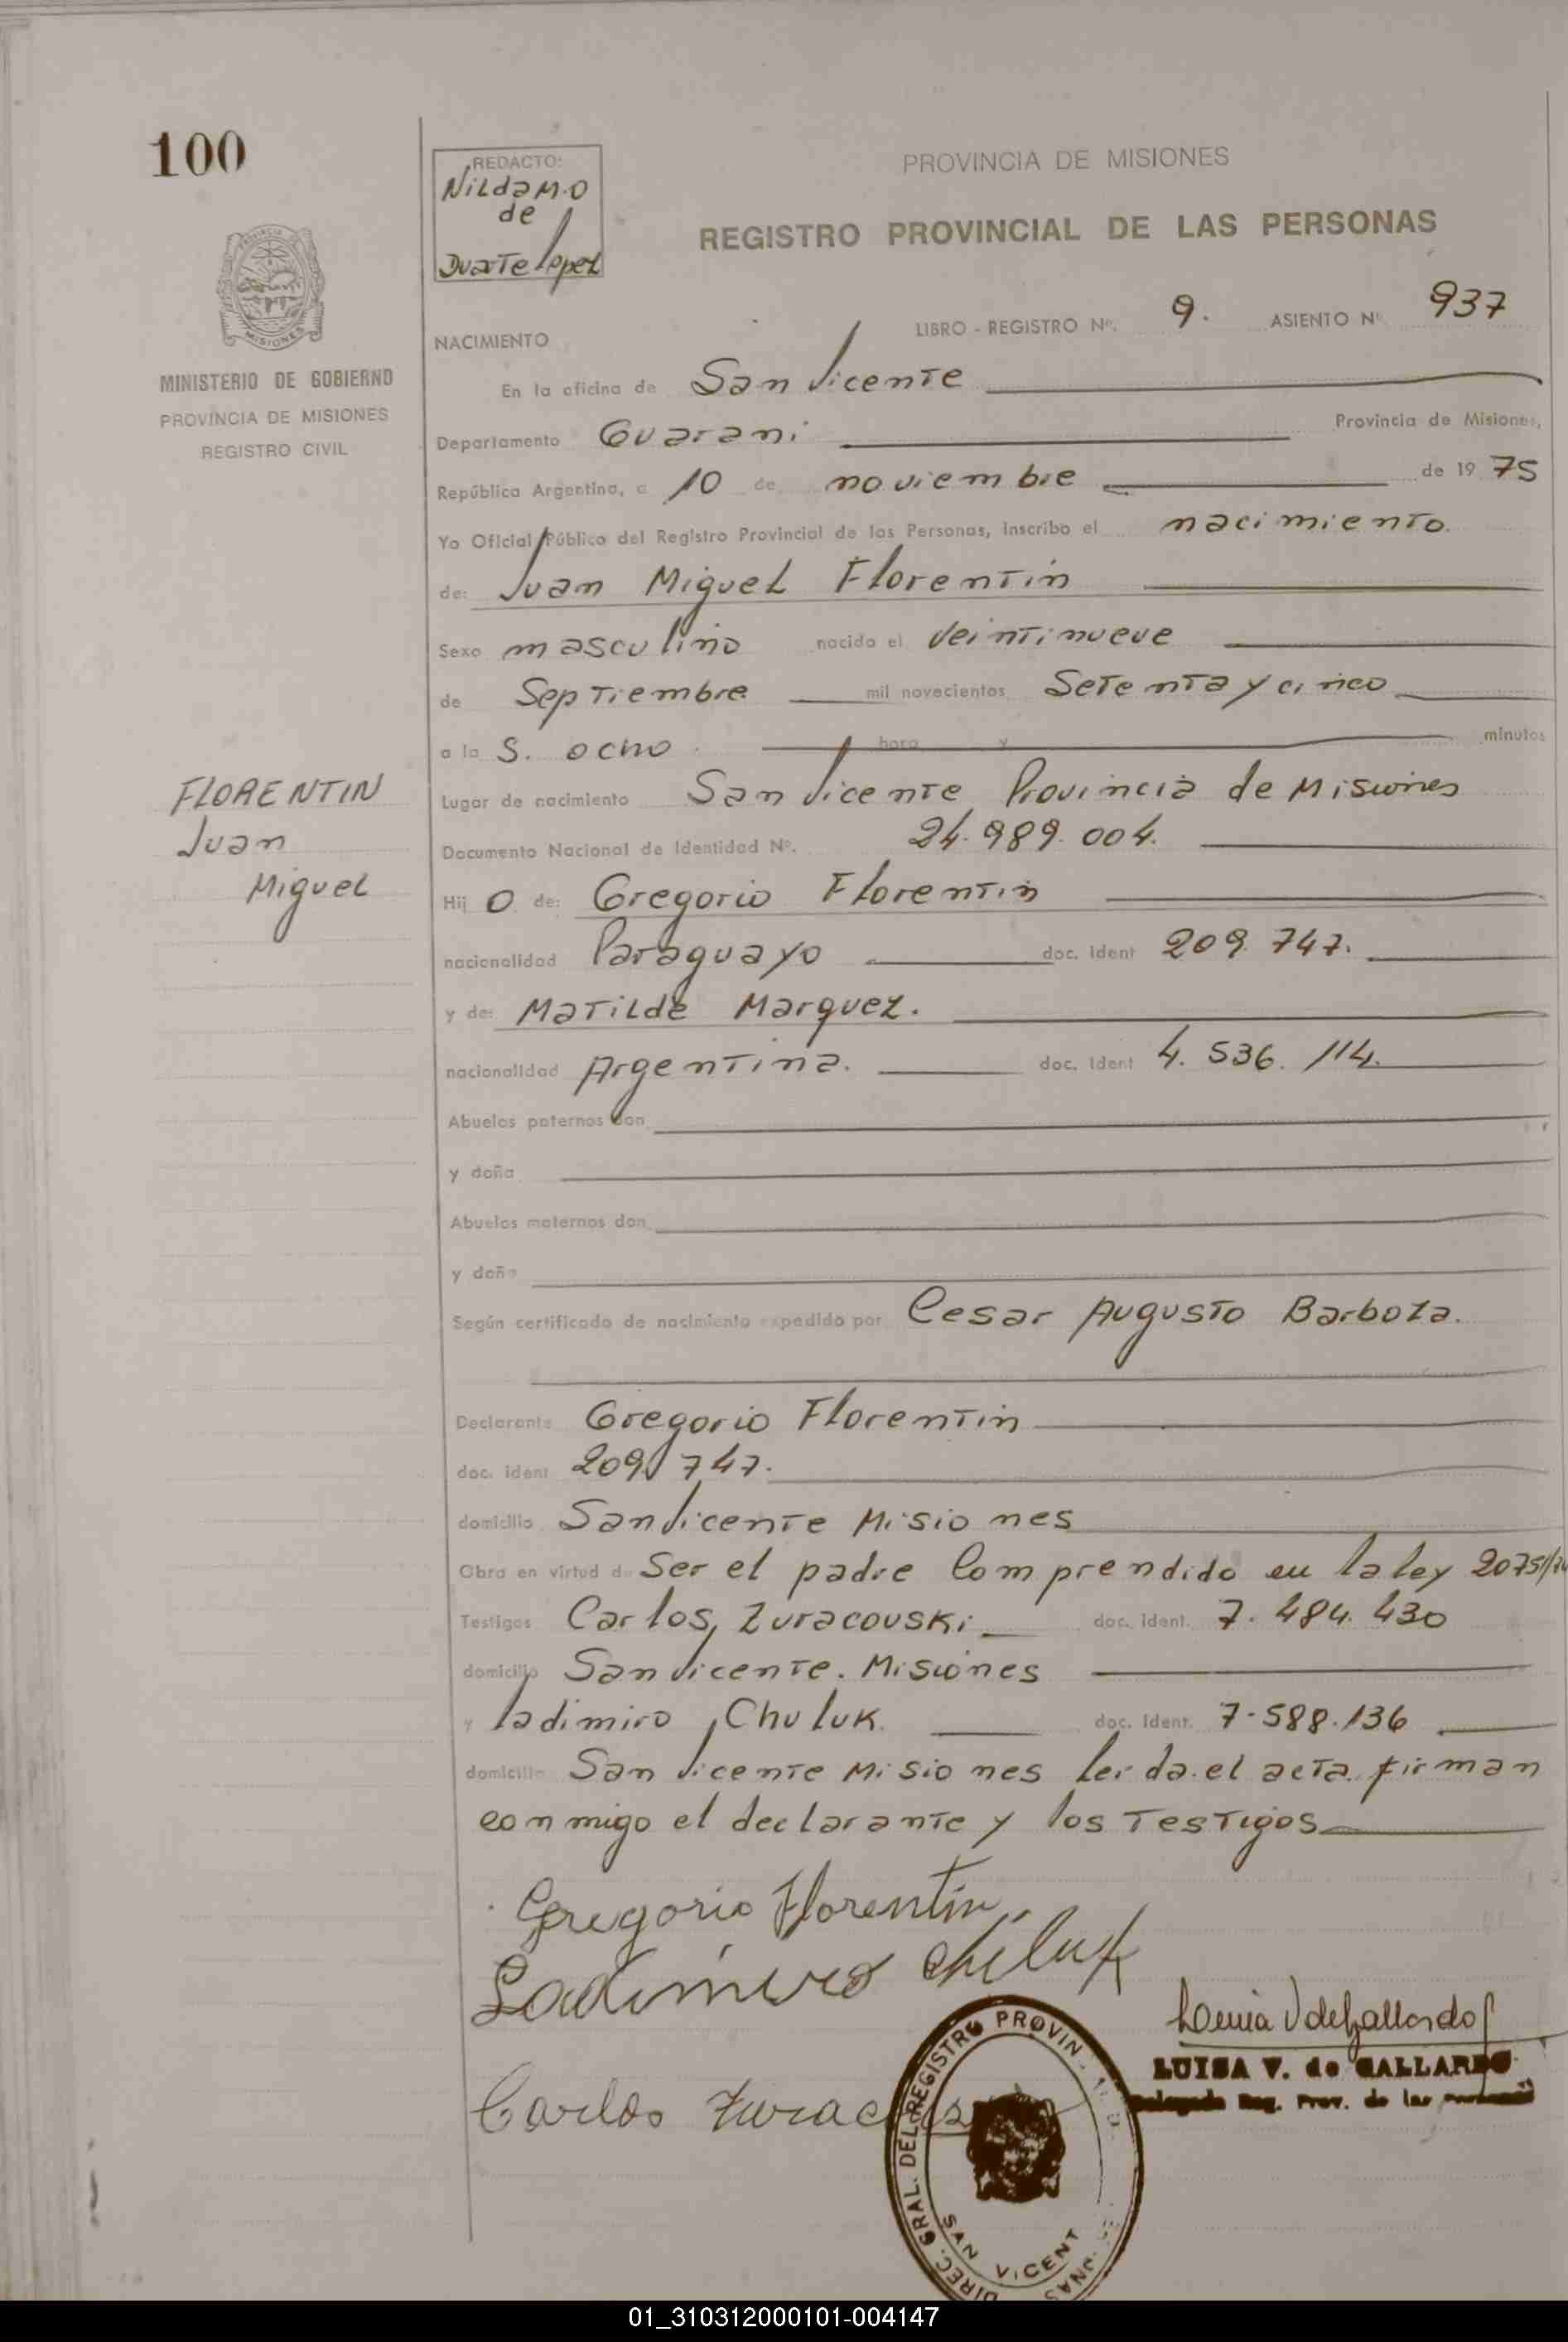 100
REDACTO:
Nilda M. O
de
Duarte Lopez
PROVINCIA DE MISIONES
REGISTRO PROVINCIAL DE LAS PERSONAS
PROVINCIA
MISIONES
MINISTERIO DE GOBIERNO
PROVINCIA DE MISIONES
REGISTRO CIVIL
LIBRO - REGISTRO Nº. 9. ASIENTO Nº 937
NACIMIENTO
En la oficina de San Vicente
Departamento Guarani Provincia de Misiones,
República Argentina, a 10 de noviembre de 19 75
Yo Oficial Público del Registro Provincial de las Personas, inscribo el nacimiento.
de: Juan Miguel Florentin
Sexo masculino nacido el Veintinueve
de Septiembre mil novecientos Setenta y cinco
a la S. ocho hora y minutos
Lugar de nacimiento San Vicente Provincia de Misiones
Documento Nacional de Identidad Nº. 24.989.004.
FLORENTIN
Juan
Miguel
Hij o de: Gregorio Florentin
nacionalidad Paraguayo doc. ident 209.747.
y de: Matilde Marquez.
nacionalidad Argentina. doc. ident 4.536.114.
Abuelos paternos don
y doña
Abuelos maternos don
y doña
Según certificado de nacimiento expedido por Cesar Augusto Barboza.
Declarante Gregorio Florentin
doc. ident 209.747.
domicilio San Vicente Misiones
Obra en virtud de Ser el padre Comprendido en la ley
Testigos Carlos Zuracouski doc. ident. 7.484.430
domicilio San Vicente. Misiones
y Ladimiro Chuluk. doc. ident. 7.588.136
domicilio San Vicente Misiones leida el acta firman
conmigo el declarante y los Testigos
Gregorio Florentin
Ladimiro
Carlos
LUISA V. de GALLARDO
Delegada Reg. Prov. de las
DIREC. GRAL. DEL REGISTRO PROVIN
SAN VICENT
01_310312000101-004147